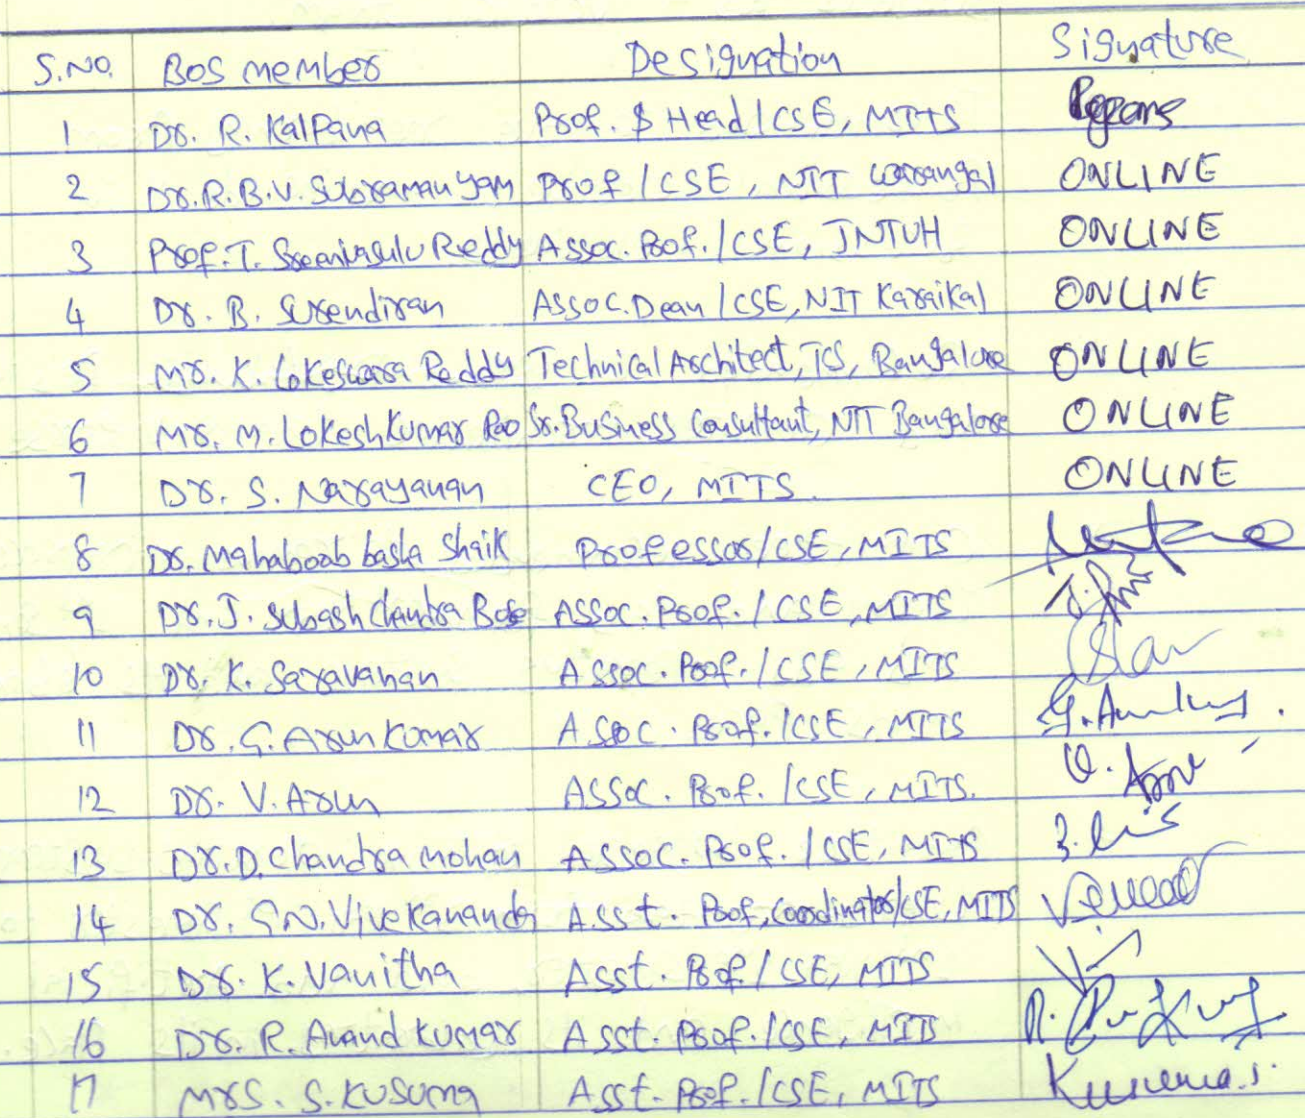 S.NO. BOS member Designation Signature
1 Dr. R. Kalpana Prof. & Head/CSE, MITS
2 Dr. R.B.V. Subramanyam Prof/CSE, NIT Warangal ONLINE
3 Prof. T. Sreenivasulu Reddy Assoc. Prof./CSE, JNTUH ONLINE
4 Dr. B. Surendiran Assoc. Dean/CSE, NIT Karaikal ONLINE
5 Mr. K. Lokeswara Reddy Technical Architect, TCS, Bangalore ONLINE
6 Mr. M. Lokesh Kumar Rao Sr. Business Consultant, NTT Bangalore ONLINE
7 Dr. S. Narayanan CEO, MITS. ONLINE
8 Dr. Mahaboob basha Shaik Professor/CSE, MITS
9 Dr. J. Subash Chandra Bose Assoc. Prof./CSE, MITS
10 Dr. K. Saravanan Assoc. Prof./CSE, MITS
11 Dr. G. Arun Kumar Assoc. Prof./CSE, MITS
12 Dr. V. Arun Assoc. Prof./CSE, MITS.
13 Dr. D. Chandra mohan Assoc. Prof./CSE, MITS
14 Dr. G.N. Vivekananda Asst. Prof, Coordinator/CSE, MITS
15 Dr. K. Vanitha Asst. Prof./CSE, MITS
16 Dr. R. Anand Kumar Asst. Prof./CSE, MITS
17 Mrs. S. Kusuma Asst. Prof./CSE, MITS